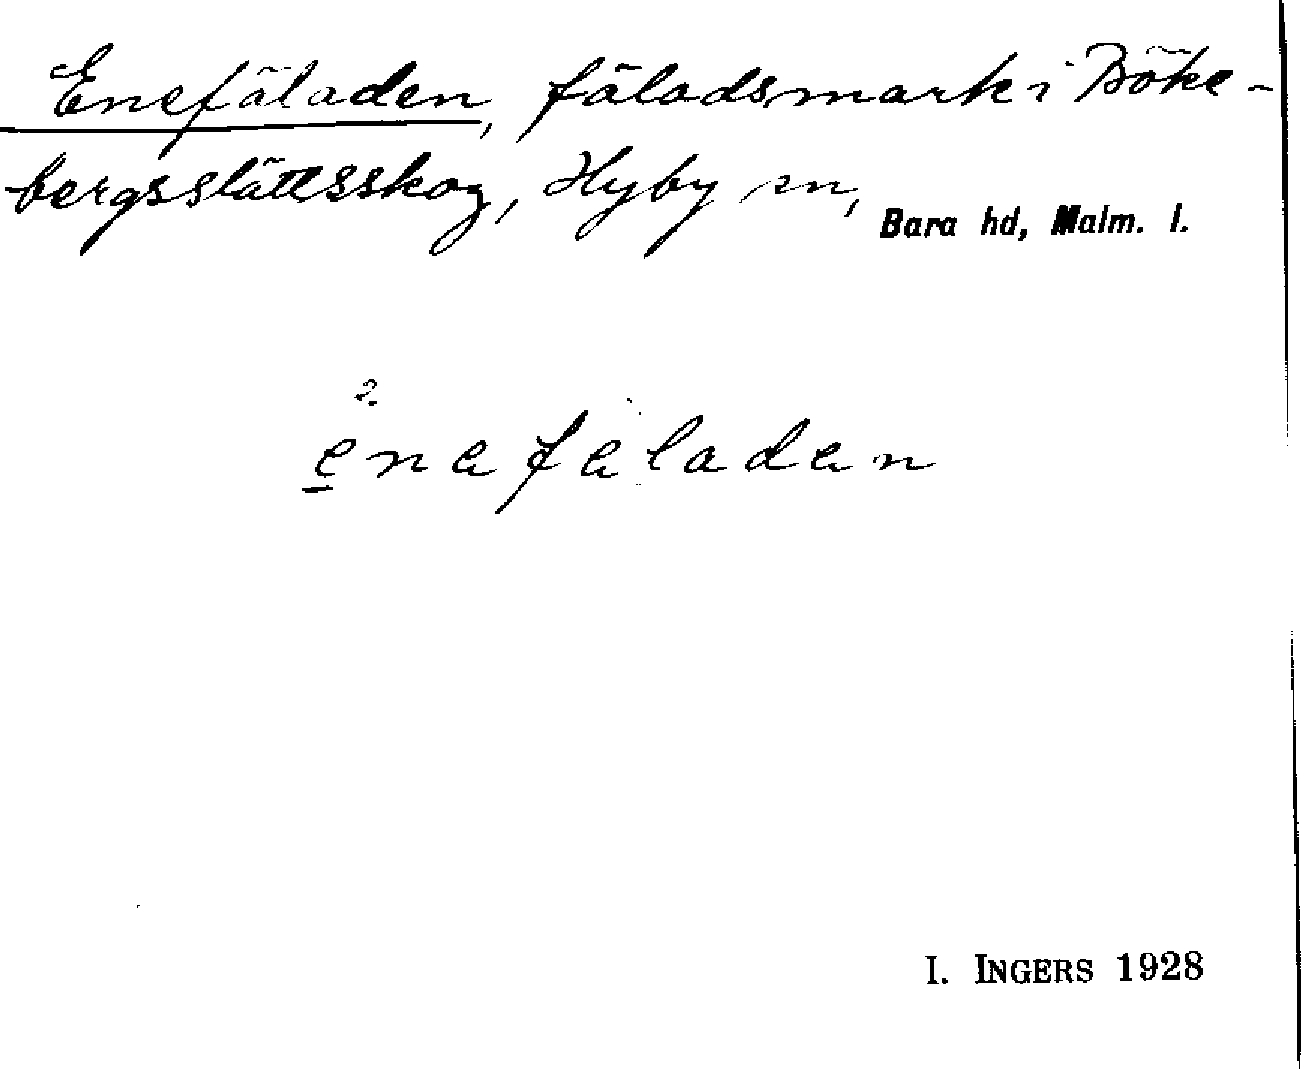 Enefäladen, fäladsmark i Böke-
bergsslättsskog, Hyby sn, Bara hd, Malm. l.
2
enefeladen
I. INGERS 1928